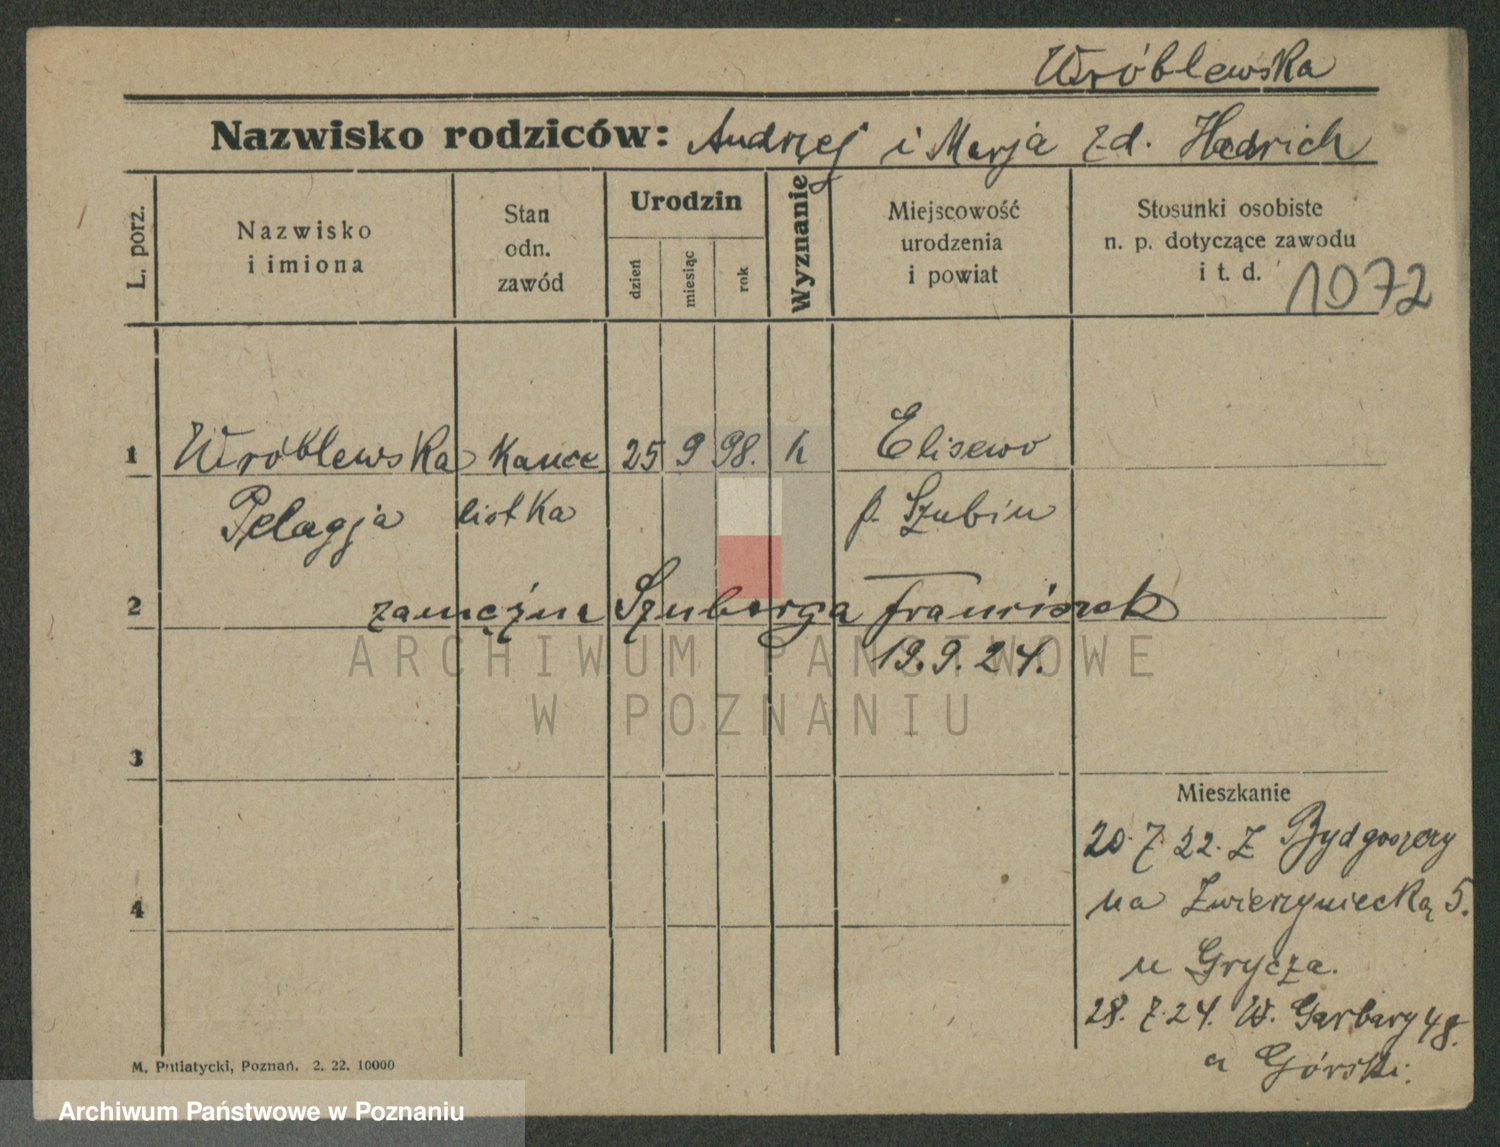 Wróblewska
Nazwisko rodziców: Andrzej i Marja zd. Hedrich
L. porz.
Nazwisko
i imiona
Stan
odn.
zawód
Urodzin
dzień
miesiąc
rok
Wyznanie
Miejscowość
urodzenia
i powiat
Stosunki osobiste
n. p. dotyczące zawodu
i t. d.
1072
1 Wróblewska kance 25 9 98. k Elisewo
Pelagja liotka p. Szubin
2 zamężna Szuberga Franciszek
19. 9. 24.
ARCHIWUM PAŃSTWOWE
W POZNANIU
3
Mieszkanie
20. 7. 22. Z Bydgoszczy
4 na Zwierzyniecką 5.
u Grycza.
28. 7. 24. W. Garbary 48.
a Górski.
M. Putiatycki, Poznań. 2. 22. 10000
Archiwum Państwowe w Poznaniu